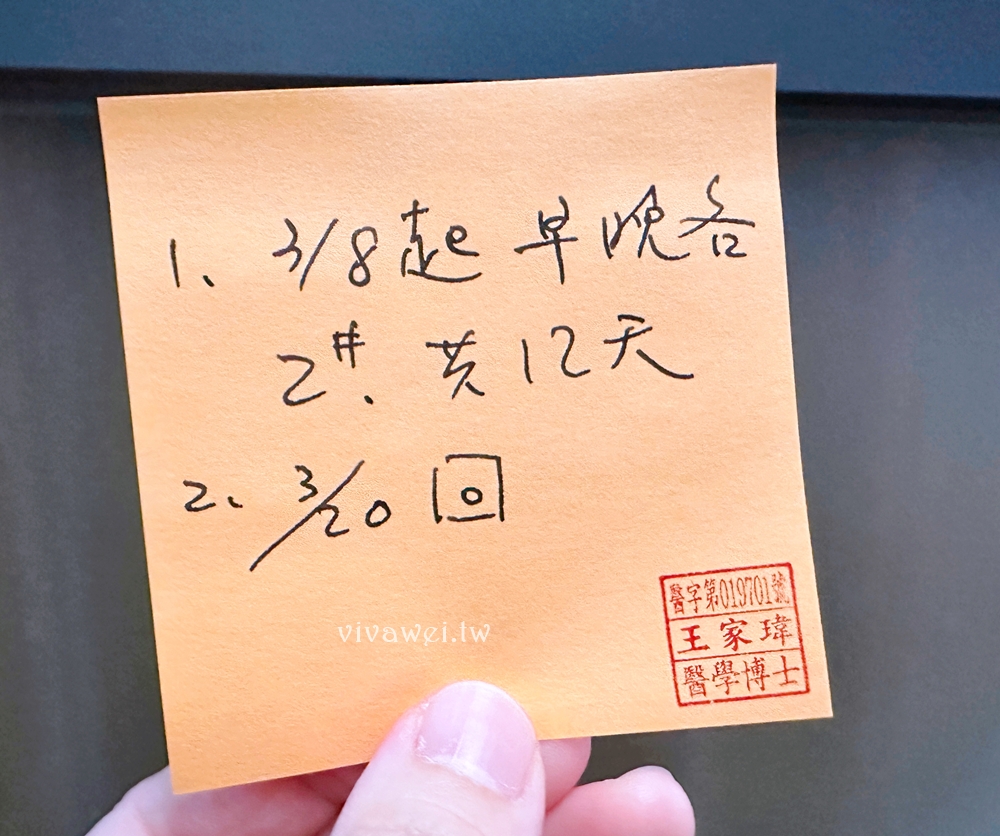 1、 3/8起 早晚各
2#. 共12天
2、 3/20 回
vivawei.tw
醫字第019701號
王家瑋
醫學博士